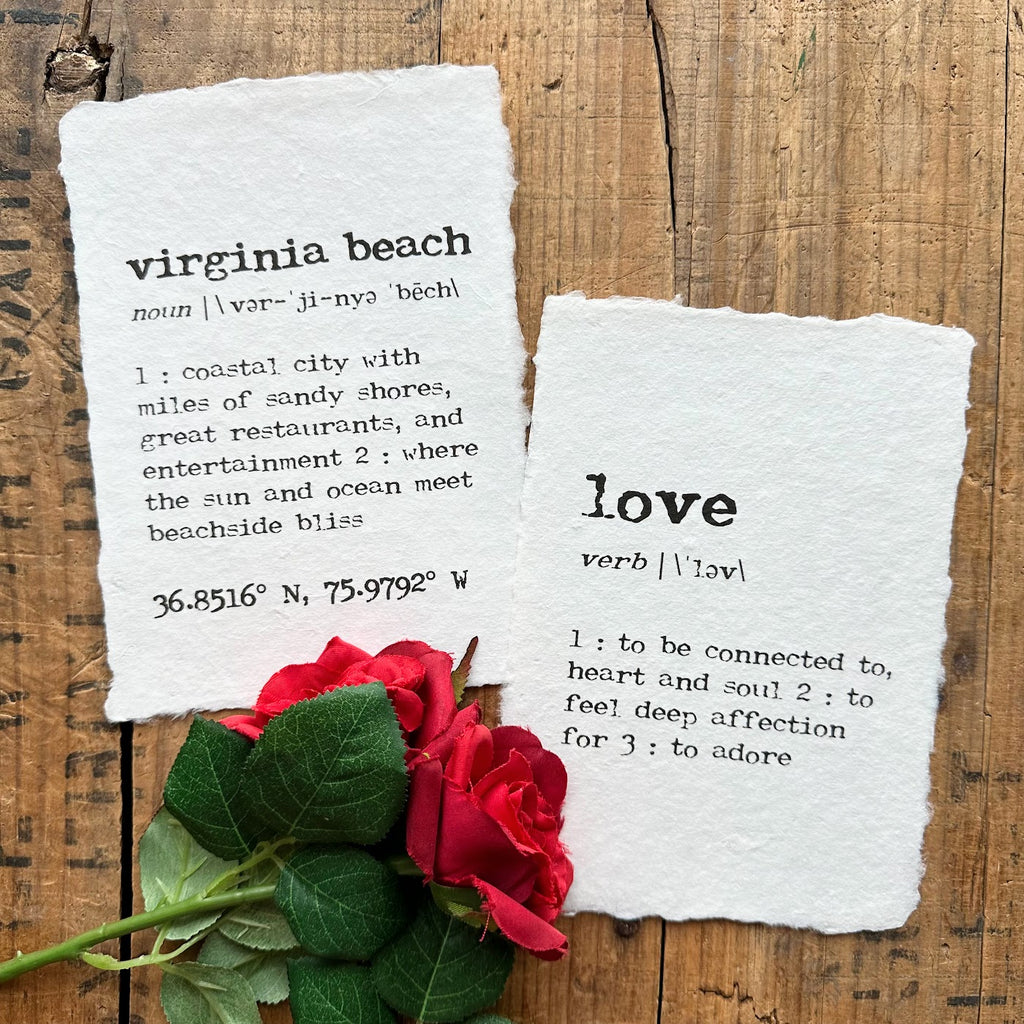 virginia beach
noun |\ vər-ˈji-nyə ˈbēch\
1 : coastal city with
miles of sandy shores,
great restaurants, and
entertainment 2 : where
the sun and ocean meet
beachside bliss
36.8516° N, 75.9792° W
love
verb |\ˈləv\
1 : to be connected to,
heart and soul 2 : to
feel deep affection
for 3 : to adore